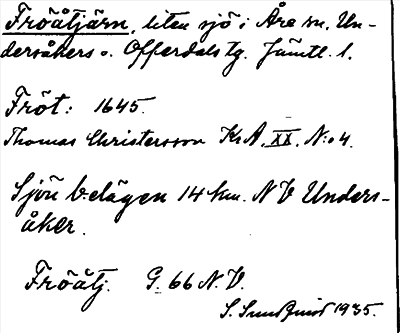 Fröåtjärn, liten sjö i Åre sn, Un-
dersåkers o. Offerdals tg. Jämtl. l.
Fröt: 1645.
Thomas Christersson KrA, XX, N:o 4.
Sjön belägen 14 km. NV Unders-
åker.
Fröåtj. G. 66 N.V.
S. Sundquist 1935.